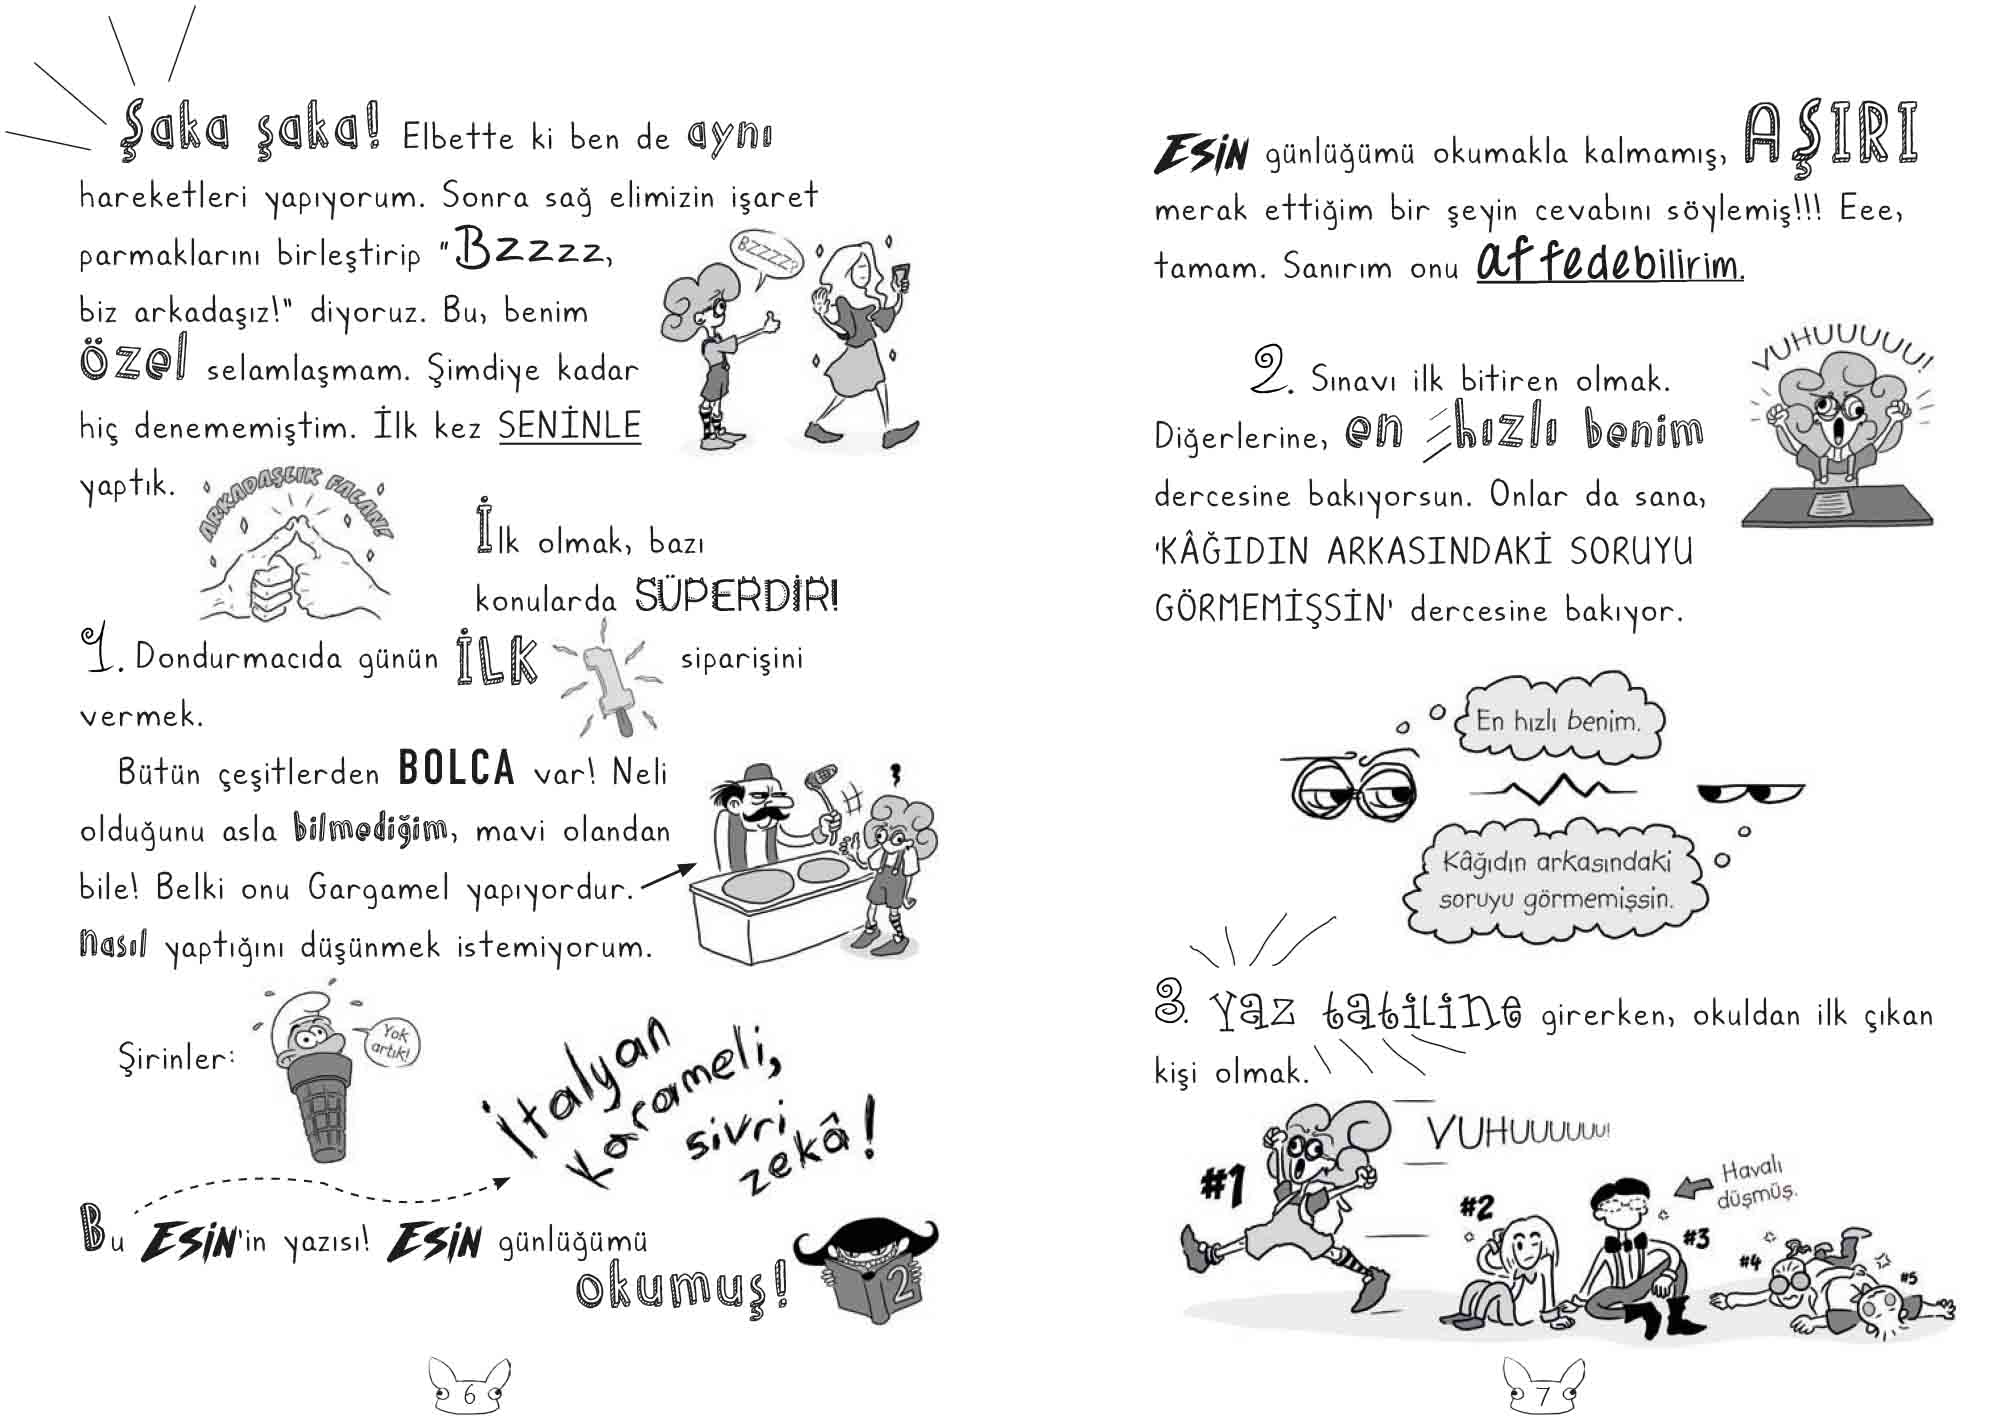 Şaka şaka! Elbette ki ben de aynı
hareketleri yapıyorum. Sonra sağ elimizin işaret
parmaklarını birleştirip "Bzzzz,
biz arkadaşız!" diyoruz. Bu, benim
özel selamlaşmam. Şimdiye kadar
hiç denememiştim. İlk kez SENİNLE
yaptık.
BZZZZZ?
ARKADAŞLIK FALAN!
İlk olmak, bazı
konularda SÜPERDİR!
1. Dondurmacıda günün İLK 1 siparişini
vermek.
Bütün çeşitlerden BOLCA var! Neli
olduğunu asla bilmediğim, mavi olandan
bile! Belki onu Gargamel yapıyordur.
Nasıl yaptığını düşünmek istemiyorum.
Şirinler:
Yok
artık!
İtalyan
Karameli,
sivri
zekâ!
Bu ESİN'in yazısı! ESİN günlüğümü
okumuş!
2
6
ESİN günlüğümü okumakla kalmamış, AŞIRI
merak ettiğim bir şeyin cevabını söylemiş!!! Eee,
tamam. Sanırım onu affedebilirim.
VUHUUUUU!
2. Sınavı ilk bitiren olmak.
Diğerlerine, en hızlı benim
dercesine bakıyorsun. Onlar da sana,
'KÂĞIDIN ARKASINDAKİ SORUYU
GÖRMEMİŞSİN' dercesine bakıyor.
En hızlı benim.
Kâğıdın arkasındaki
soruyu görmemişsin.
3. Yaz tatiline girerken, okuldan ilk çıkan
kişi olmak.
VUHUUUUUU!
#1
#2
Havalı
düşmüş.
#3
#4
#5
7